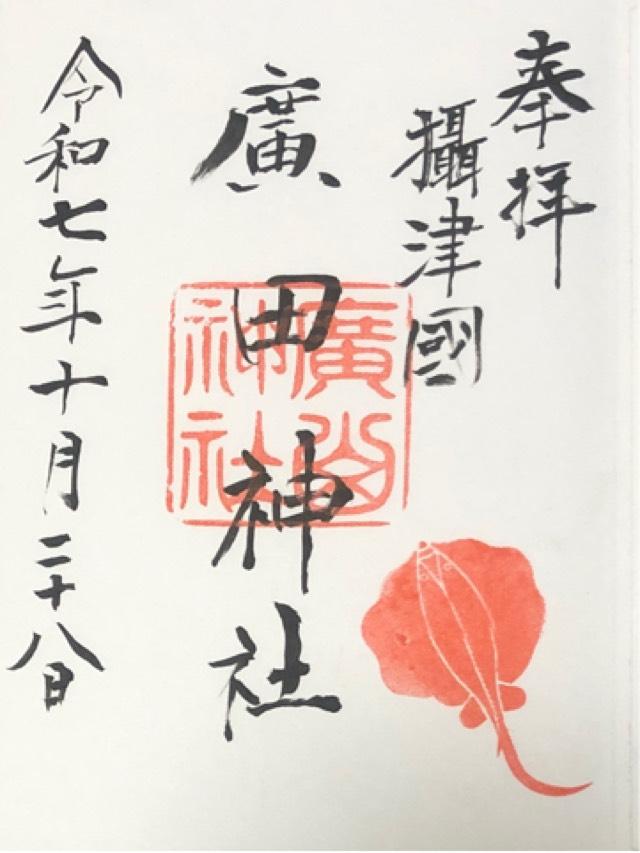 奉拝
攝津國
廣田神社
廣田
神社
令和七年十月二十八日